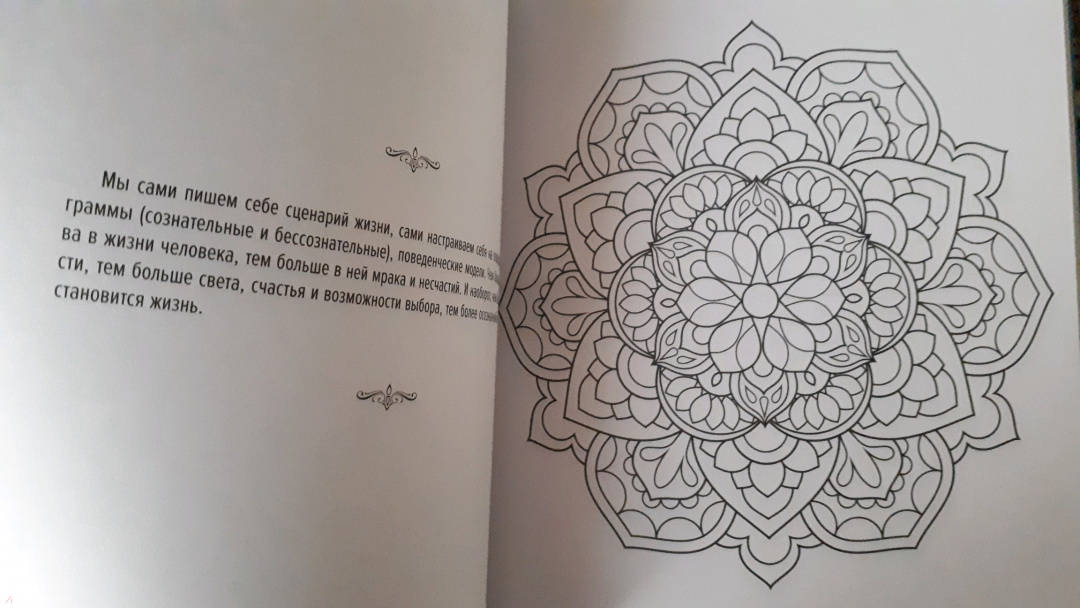 Мы сами пишем себе сценарий жизни, сами настраиваем себя на
граммы (сознательные и бессознательные), поведенческие модели.
ва в жизни человека, тем больше в ней мрака и несчастий. И наоборот,
сти, тем больше света, счастья и возможности выбора, тем более
становится жизнь.